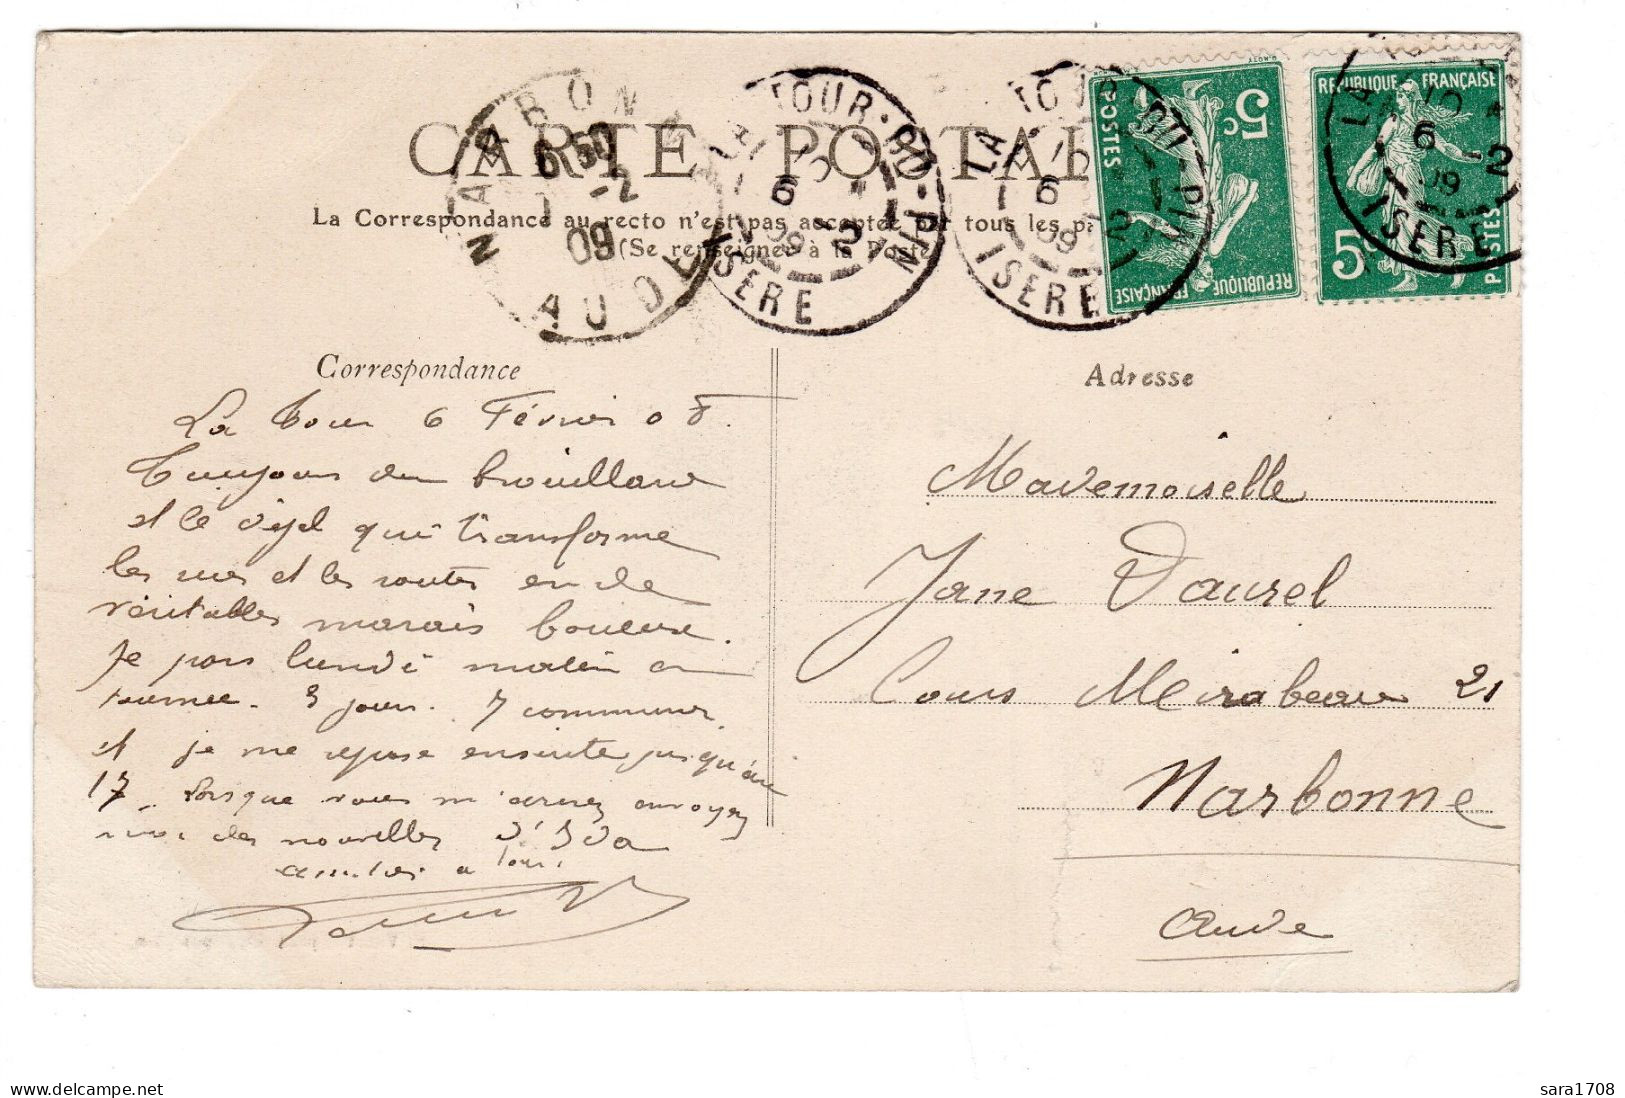 CARTE POSTALE
La Correspondance au recto n'est pas acceptée par tous les pa
(Se renseigner à la Poste
NARBONNE
6 50
-2
09
AUDE
LA TOUR-DU-PIN
6 -2
09
ISERE
LA TOUR-DU-PIN
6 -2
09
ISERE
POSTES
5c
REPUBLIQUE FRANÇAISE
REPUBLIQUE FRANÇAISE
5c
POSTES
LA
6 -2
09
ISERE
Correspondance
La Tour 6 Février 0
Toujours du brouillard
et le qui transforme
les rues et les routes en de
véritables marais boueux.
Je pars lundi matin en
tournée. 3 jours. 7 communes
et je me repose ensuite jusqu'au
17. Lorsque vous m'écrirez envoyez
moi des nouvelles d'Ida
amitiés a tous.
Adresse
Mademoiselle
Jane Daurel
Cours Mirabeau 21
Narbonne
Aude
sara1708